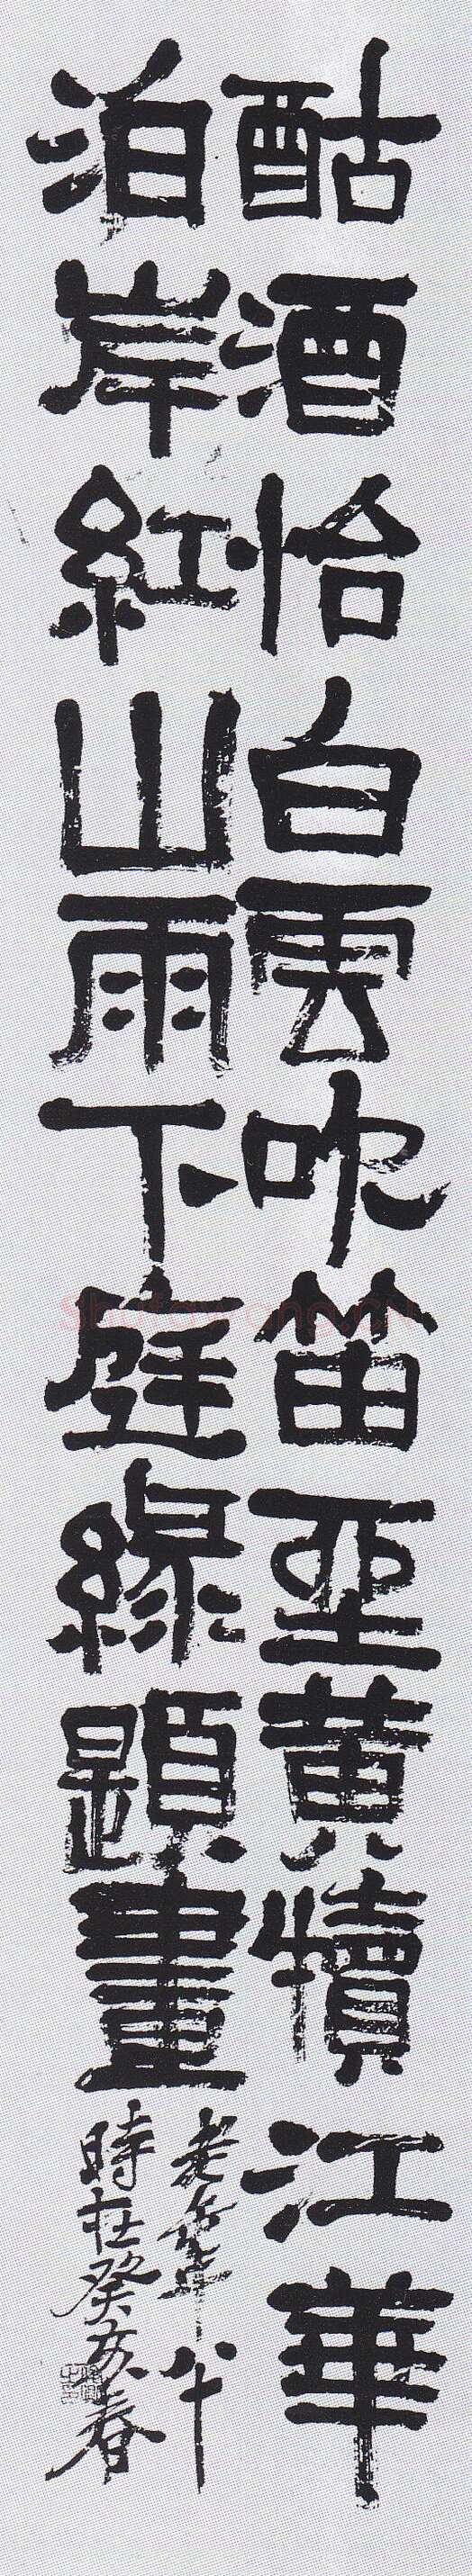 酤酒怡白雲吹笛至黄犢江華
泊岸紅山雨下庭綠題畫
老缶年八十
時在癸亥春